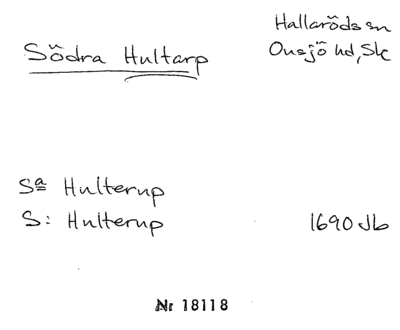 Hallaröds sn
Södra Hultarp
Onsjö hd, Sk
Sa Hulterup
S: Hulterup 1690 Jb
Nr 18118